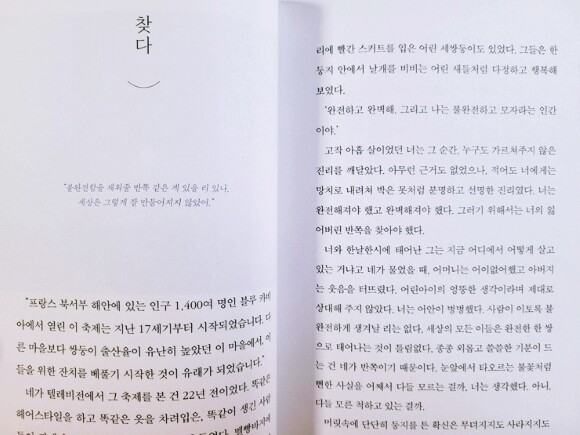 찾다
“불완전함을 채워줄 반쪽 같은 게 있을 리 있나.
세상은 그렇게 잘 만들어지지 않았어.”
“프랑스 북서부 해안에 있는 인구 1,400여 명인 블루 카네
아에서 열린 이 축제는 지난 17세기부터 시작되었습니다. 다
른 마을보다 쌍둥이 출산율이 유난히 높았던 이 마을에서, 이
들을 위한 잔치를 베풀기 시작한 것이 유래가 되었습니다.”
네가 텔레비전에서 그 축제를 본 건 22년 전이었다. 똑같은
헤어스타일을 하고 똑같은 옷을 차려입은, 똑같이 생긴 사람
리에 빨간 스커트를 입은 어린 세쌍둥이도 있었다. 그들은 한
둥지 안에서 날개를 비비는 어린 새들처럼 다정하고 행복해
보였다.
‘완전하고 완벽해, 그리고 나는 불완전하고 모자라는 인간
이야.’
고작 아홉 살이었던 너는 그 순간, 누구도 가르쳐주지 않은
진리를 깨달았다. 아무런 근거도 없었으나, 적어도 너에게는
망치로 내려쳐 박은 못처럼 분명하고 선명한 진리였다. 너는
완전해져야 했고 완벽해져야 했다. 그러기 위해서는 너의 잃
어버린 반쪽을 찾아야 했다.
너와 한날한시에 태어난 그는 지금 어디에서 어떻게 살고
있는 거냐고 네가 물었을 때, 어머니는 어이없어했고 아버지
는 웃음을 터뜨렸다. 어린아이의 엉뚱한 생각이라며 제대로
상대해 주지 않았다. 너는 어안이 벙벙했다. 사람이 이토록 불
완전하게 생겨날 리는 없다. 세상의 모든 이들은 완전한 한 쌍
으로 태어나는 것이 틀림없다, 종종 외롭고 쓸쓸한 기분이 드
는 건 네가 반쪽이기 때문이다. 눈앞에서 타오르는 불꽃처럼
뻔한 사실을 어째서 다들 모르는 걸까, 너는 생각했다. 아니,
다들 모른 척하고 있는 걸까.
머릿속에 단단히 둥지를 튼 확신은 무뎌지지도 사라지지도